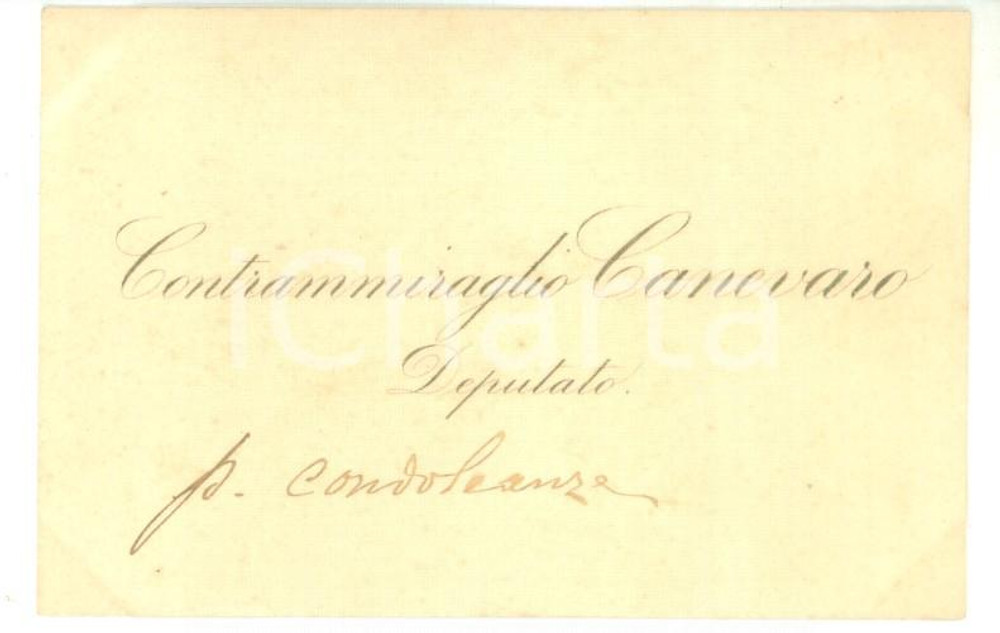 Contrammiraglio Canevaro
Deputato.
p. condoleanze
iCharta